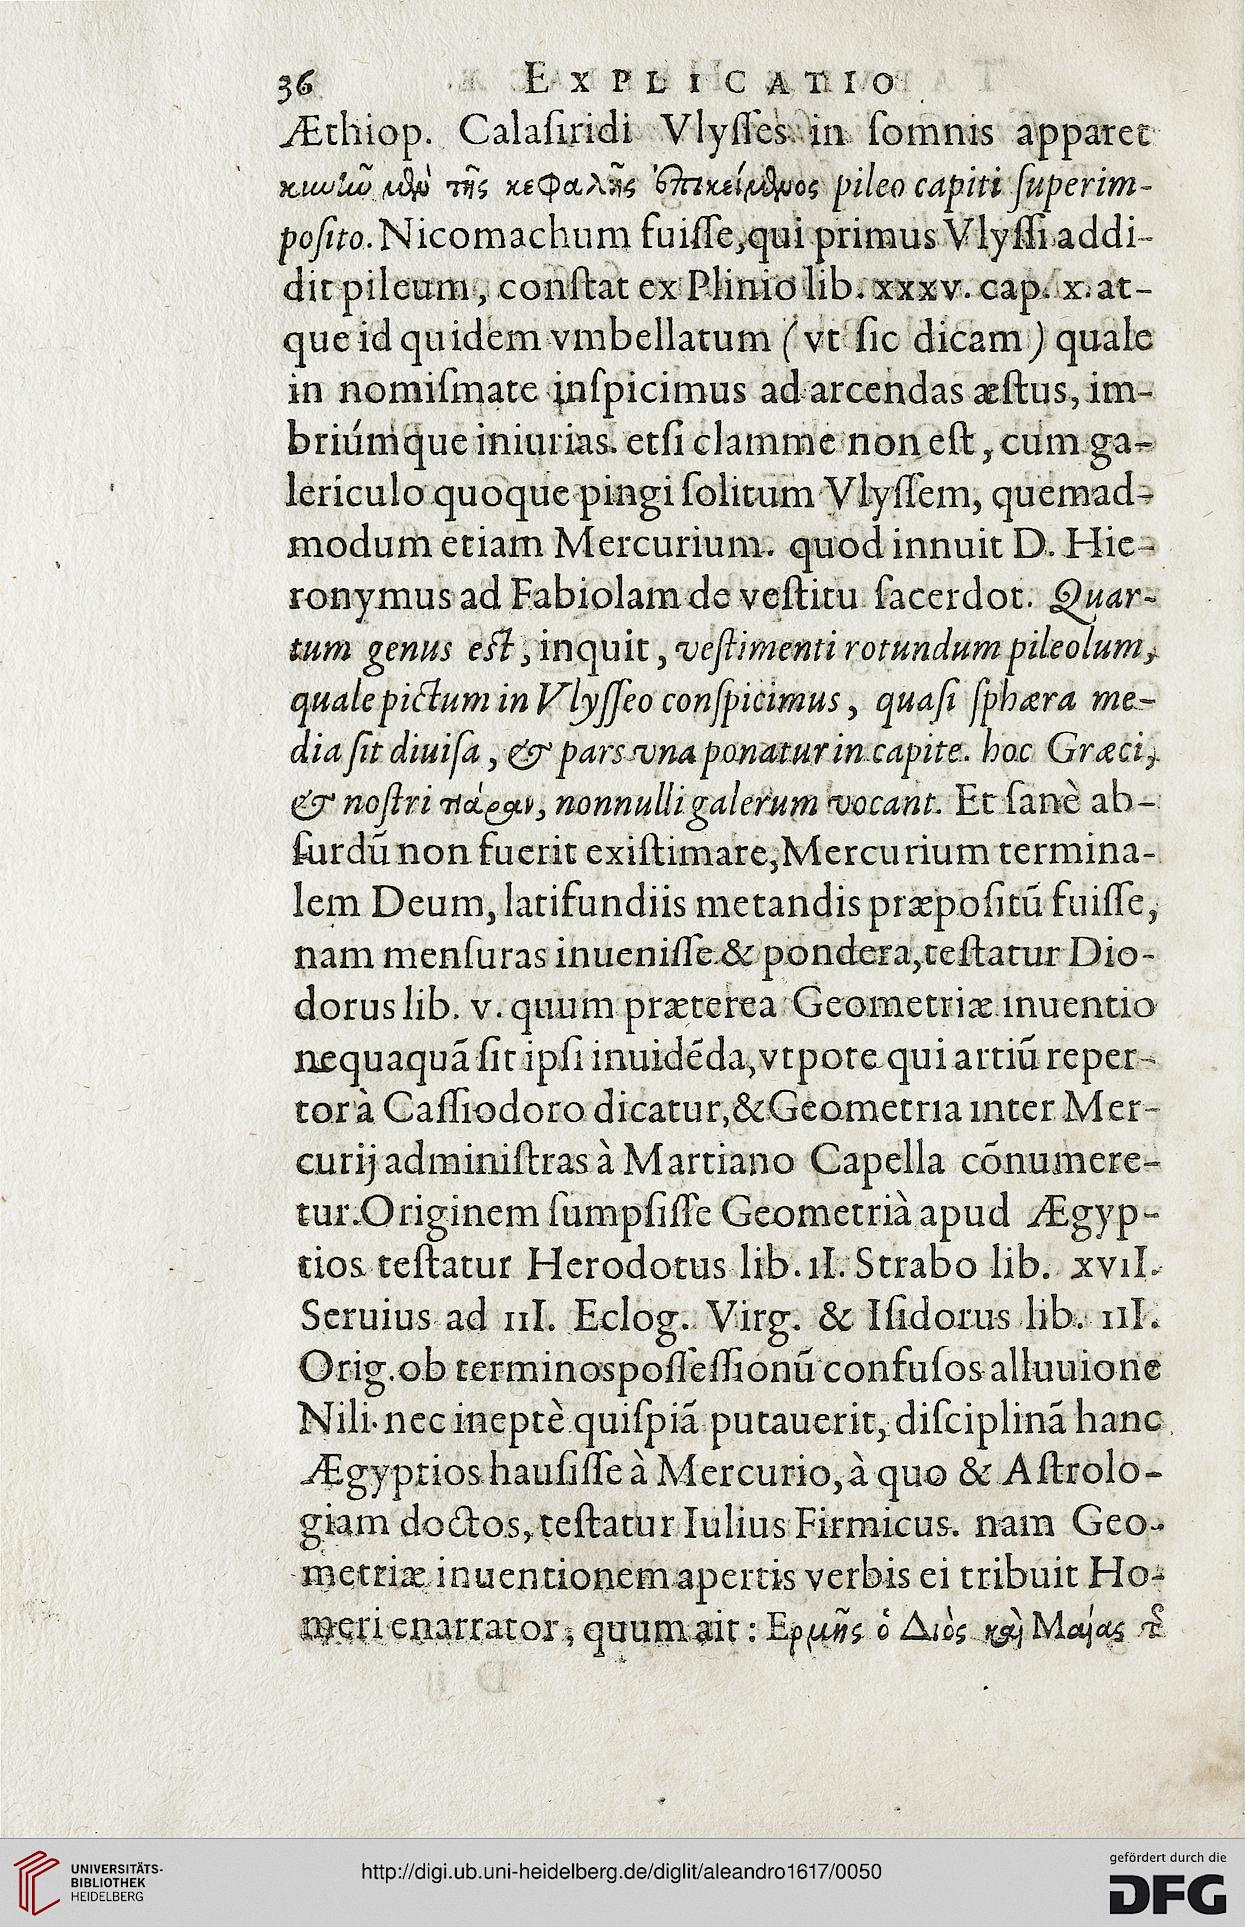 36 EXPLICATIO
Æthiop. Calaſiridi Vlyſſes in ſomnis apparet
κυνῆν μὲν τῆς κεφαλῆς ἐπικείμενος pileo capiti ſuperim-
poſito. Nicomachum fuiſſe, qui primus Vlyſſi addi-
dit pileum, conſtat ex Plinio lib. xxxv. cap. x. at-
que id quidem vmbellatum (vt ſic dicam) quale
in nomiſmate inſpicimus ad arcendas æſtus, im-
briúmque iniurias. etſi clamme non eſt, cum ga-
lericulo quoque pingi ſolitum Vlyſſem, quemad-
modum etiam Mercurium. quod innuit D. Hie-
ronymus ad Fabiolam de veſtitu ſacerdot. Quar-
tum genus eſt, inquit, veſtimenti rotundum pileolum,
quale pictum in Vlyſſeo conſpicimus, quaſi ſphæra me-
dia ſit diuiſa, & pars vna ponatur in capite. hoc Græci,
& noſtri τιάραν, nonnulli galerum vocant. Et ſanè ab-
ſurdū non fuerit exiſtimare, Mercurium termina-
lem Deum, latifundiis metandis præpoſitū fuiſſe,
nam menſuras inueniſſe & pondera, teſtatur Dio-
dorus lib. v. quum præterea Geometriæ inuentio
nequaquā ſit ipſi inuidēda, vtpote qui artiū reper-
tor à Caſſiodoro dicatur, & Geometria inter Mer-
curij adminiſtras à Martiano Capella cōnumere-
tur. Originem ſumpſiſſe Geometrià apud Ægyp-
tios teſtatur Herodotus lib. II. Strabo lib. XVII.
Seruius ad III. Eclog. Virg. & Iſidorus lib. III.
Orig. ob terminos poſſeſſionū confuſos alluuione
Nili. nec ineptè quiſpiā putauerit, diſciplinā hanc
Ægyptios hauſiſſe à Mercurio, à quo & Aſtrolo-
giam doctos, teſtatur Iulius Firmicus. nam Geo-
metriæ inuentionem apertis verbis ei tribuit Ho-
meri enarrator, quum ait: Ερμῆς ὁ Διὸς καὶ Μαίας τȣ͂
UNIVERSITÄTS-
BIBLIOTHEK
HEIDELBERG
http://digi.ub.uni-heidelberg.de/diglit/aleandro1617/0050
gefördert durch die
DFG